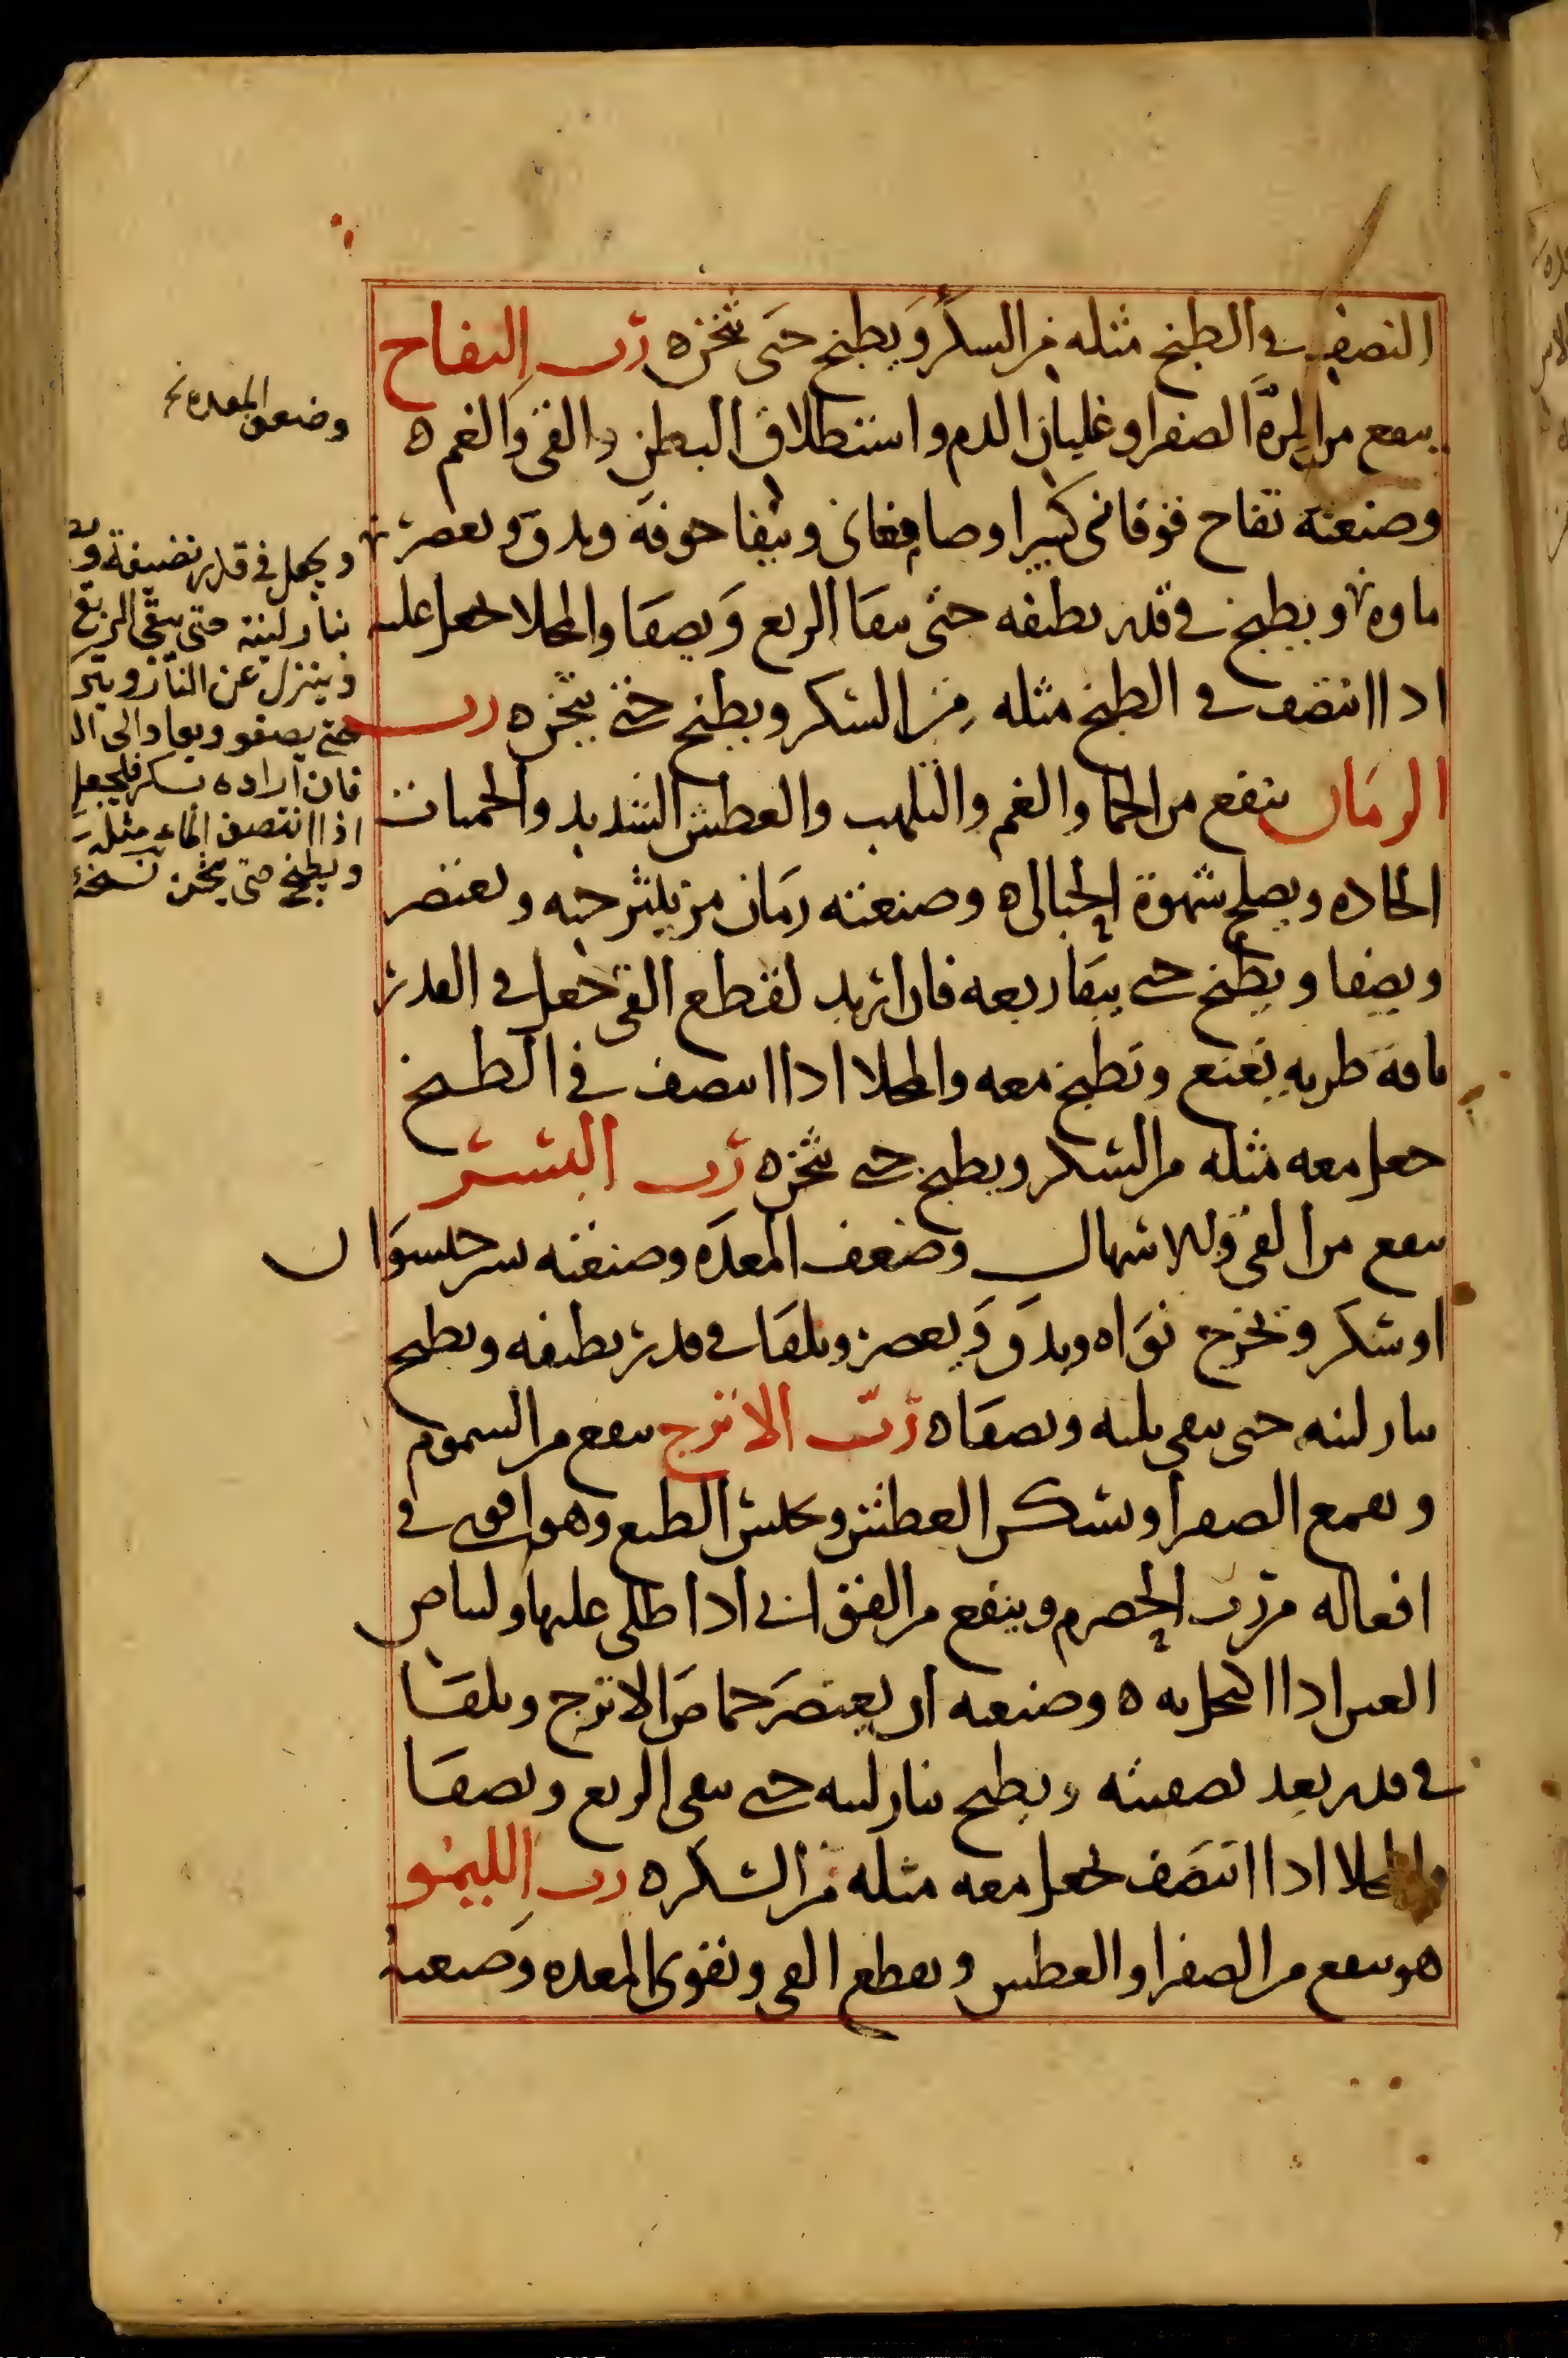 النصف في الطبخ مثله من السكر ويطبخ حتى يثخن ه رب التفاح
ينفع من المرة الصفرا وغليان الدم واستطلاق البطن والقي والغم ه
وصنعته تفاح فوقاني كبيرا وينقا جوفه ويدق ويعصر
ماوه ويطبخ في قدر نظيفه حتى يبقا الربع ويصفا والمحلا يجعل عليه
اذا انتصف في الطبخ مثله من السكر ويطبخ حتى يثخن ه رب
الرمان ينفع من الحما والغم والتلهب والعطش الشديد والحميات
الحاده ويصلح شهوة الحبالى ه وصنعته رمان مز ينثر حبه ويعتصر
ويصفا ويطبخ حتى يبقا ربعه فان اريد لقطع القي جعل في القدر
باقة طريه نعنع وتطبخ معه والمحلا اذا انتصف في الطبخ
جعل معه مثله من السكر ويطبخ حتى يثخن ه رب البسر
ينفع من القي وللاسهال وضعف المعده وصنعته بسر جيسوان
او سكر وتخرج نواه ويدق ويعصر ويلقا في قدر نظيفه ويطبخ
بنار لينه حتى يبقى ثلثه ويصفاه رب الاترج ينفع من السموم
ويقمع الصفرا ويسكن العطش ويحبس الطبع وهو اقوى في
افعاله من رب الحصرم وينفع من القوابي اذا طلي عليها ولبياض
العين اذا اكتحل به ه وصنعته ان يعتصر حماض الاترج ويلقا
في قدر بعد تصفيته ويطبخ بنار لينه حتى يبقى الربع ويصفا
والمحلا اذا انتصف يجعل معه مثله من السكر ه رب الليمو
هو ينفع من الصفرا والعطش ويقطع القي ويقوي المعده وصنعته
وضعف المعده
ويجعل في قدر نضيفة
بنار لينة حتى يبقى الربع
وينزل عن النار
حتى يصفو ويعاد الى
فان اراده بسكر فليجعل
اذا انتصف الماء مثله
ويطبخ حتى يثخن نسخة